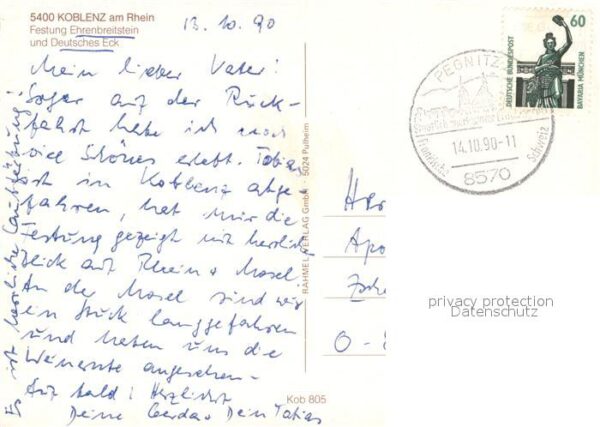 5400 KOBLENZ am Rhein
Festung Ehrenbreitstein
und Deutsches Eck
13.10.90
Mein lieber Vater!
Sogar auf der Rück-
fahrt habe ich noch
viel Schönes erlebt. Tobias
ist in Koblenz abge-
fahren, hat mir die
Festung gezeigt mit herrlichem
Blick auf Rhein + Mosel.
An der Mosel sind wir
ein Stück langgefahren
und haben uns die
Weinernte angesehen.
Auf bald! Herzlichst
Deine Gerda + Dein Tobias
Es ist herrliche
RAHMEL-VERLAG GmbH · 5024 Pulheim
Kob 805
PEGNITZ
14.10.90-11
8570
Fränkische Schweiz
60
DEUTSCHE BUNDESPOST
BAVARIA MÜNCHEN
Her
Apo
O-8
privacy protection
Datenschutz